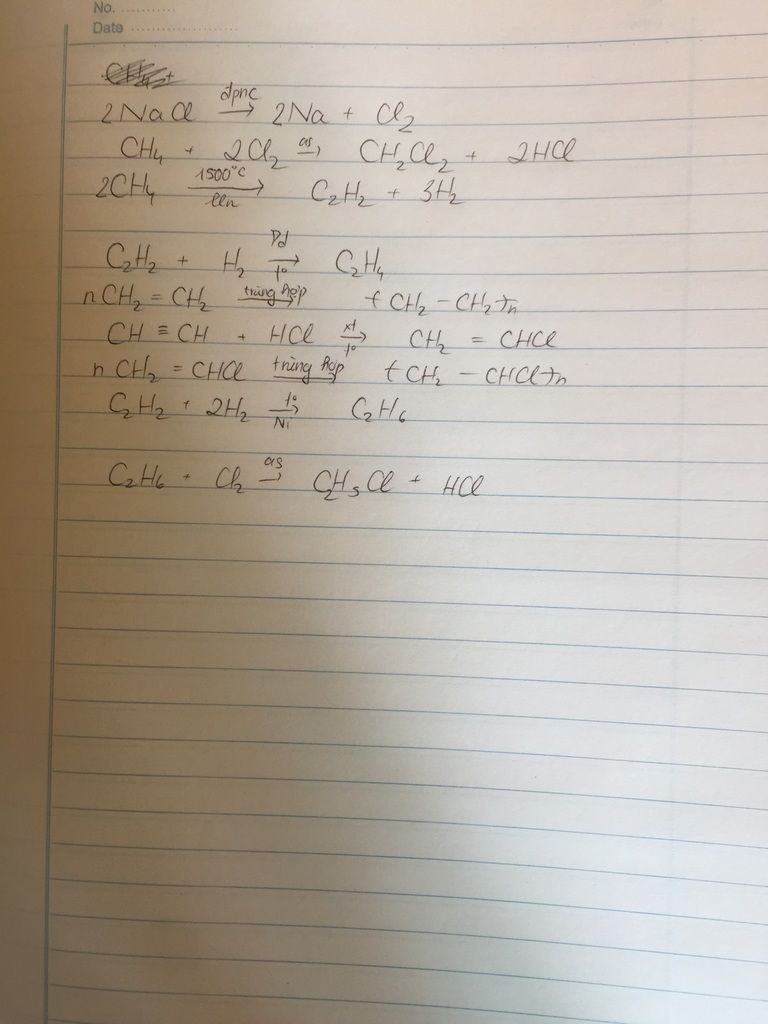 No. ..........
Date ....................
2NaCl đpnc → 2Na + Cl₂
CH₄ + 2Cl₂ as → CH₂Cl₂ + 2HCl
2CH₄ 1500°C → lln C₂H₂ + 3H₂
C₂H₂ + H₂ Pd → t° C₂H₄
nCH₂ = CH₂ trùng hợp → (CH₂ – CH₂)n
CH ≡ CH + HCl xt → t° CH₂ = CHCl
nCH₂ = CHCl trùng hợp → (CH₂ – CHCl)n
C₂H₂ + 2H₂ t° → Ni C₂H₆
C₂H₆ + Cl₂ as → C₂H₅Cl + HCl